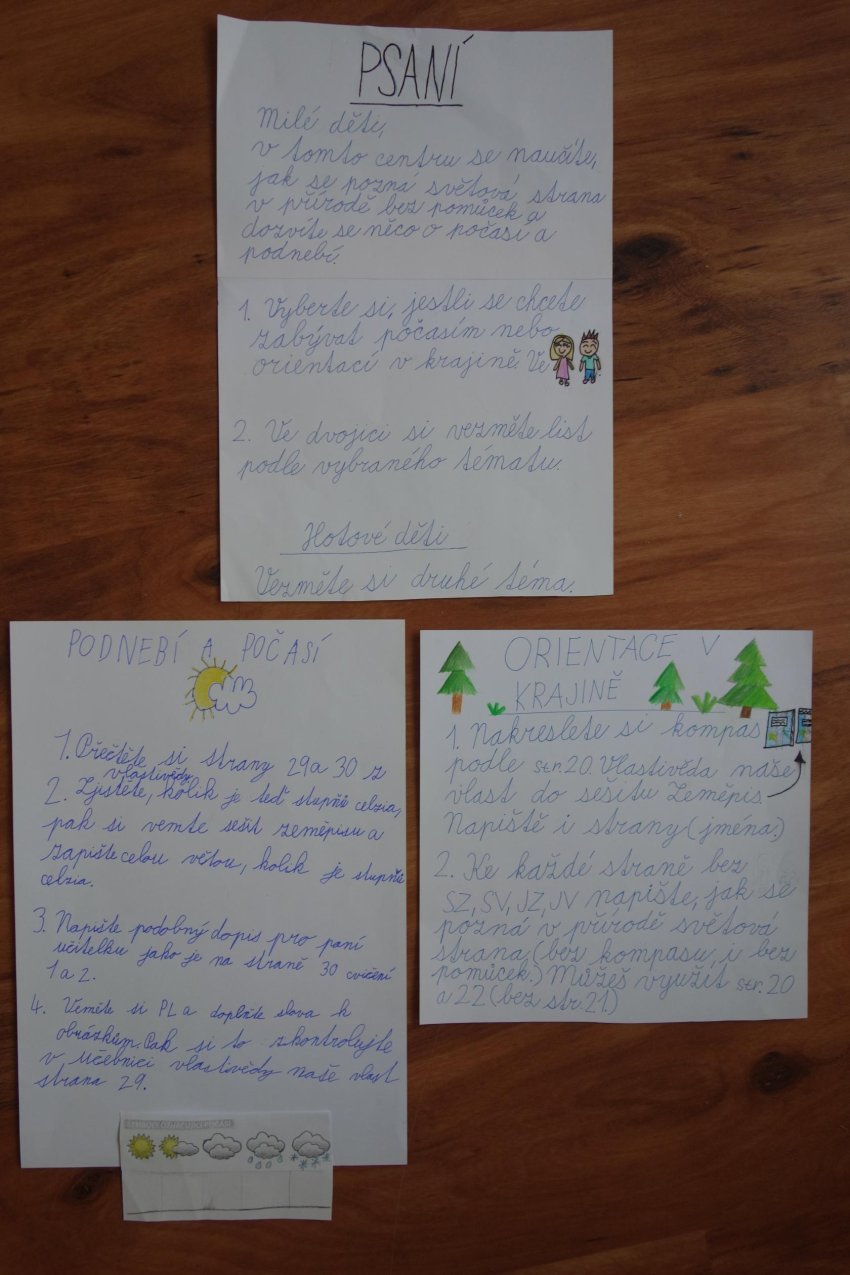 PSANÍ
Milé děti,
v tomto centru se naučíte,
jak se pozná světová strana
v přírodě bez pomůcek a
dozvíte se něco o počasí a
podnebí.
1. Vyberte si, jestli se chcete
zabývat počasím nebo
orientací v krajině. Ve
2. Ve dvojici si vezměte list
podle vybraného tématu.
Hotové děti
Vezměte si druhé téma.
PODNEBÍ A POČASÍ
1. Přečtěte si strany 29 a 30 z
vlastivědy.
2. Zjistěte, kolik je teď stupňů celzia,
pak si vemte sešit zeměpisu a
zapište celou větou, kolik je stupňů
celzia.
3. Napište podobný dopis pro paní
učitelku jako je na straně 30 cvičení
1 a 2.
4. Veměte si PL a doplňte slova k
obrázkům. Pak si to zkontrolujte
v učebnici vlastivědy naše vlast
strana 29.
ORIENTACE V
KRAJINĚ
1. Nakreslete si kompas
podle str. 20. Vlastivěda naše
vlast do sešitu Zeměpis
Napiště i strany (jména.)
2. Ke každé straně bez
SZ, SV, JZ, JV napište, jak se
pozná v přírodě světová
strana, (bez kompasu, i bez
pomůcek.) Můžeš využít str. 20
a 22 (bez str. 21.)